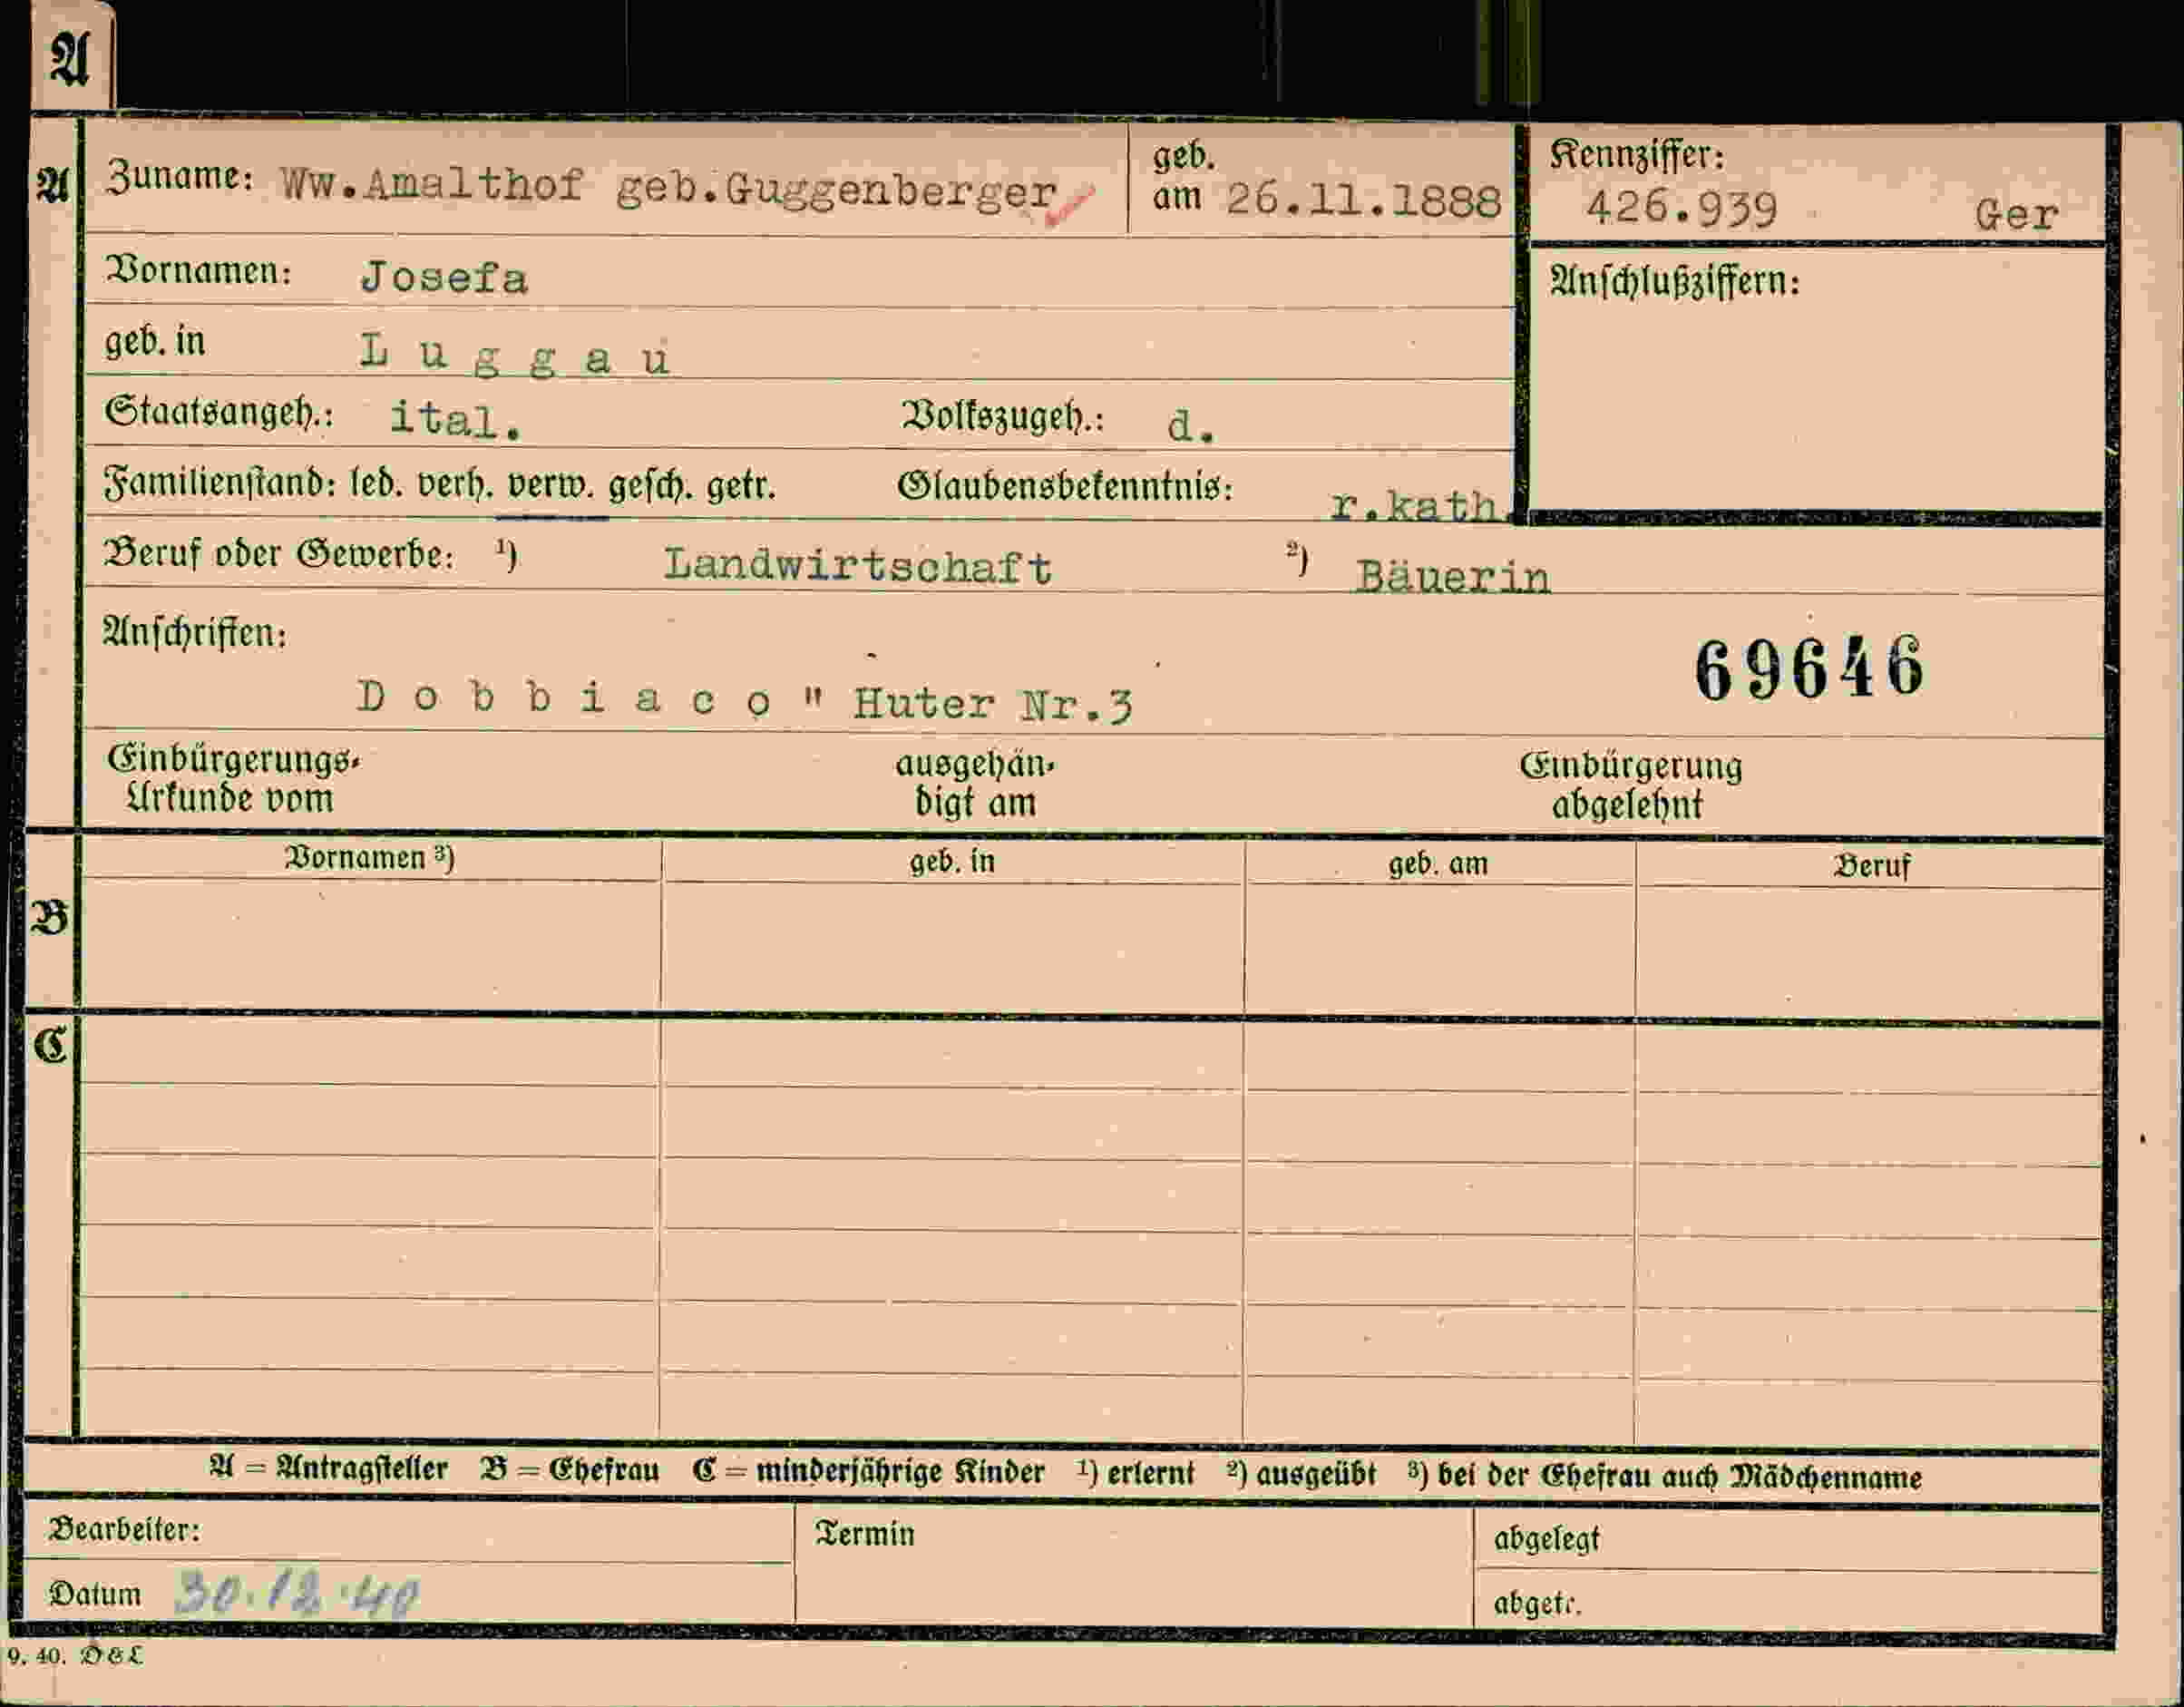 A
A Zuname: Ww.Amalthof geb.Guggenberger geb. am 26.11.1888 Kennziffer: 426.939 Ger
Vornamen: Josefa Anschlußziffern:
geb. in Luggau
Staatsangeh.: ital. Volkszugeh.: d.
Familienstand: led. verh. verw. gesch. getr. Glaubensbekenntnis: r.kath.
Beruf oder Gewerbe: ¹) Landwirtschaft ²) Bäuerin
Anschriften:
69646
Dobbiaco " Huter Nr.3
Einbürgerungs- ausgehän- Einbürgerung
Urkunde vom digt am abgelehnt
Vornamen ³) geb. in geb. am Beruf
B
C
A = Antragsteller B = Ehefrau C = minderjährige Kinder ¹) erlernt ²) ausgeübt ³) bei der Ehefrau auch Mädchenname
Bearbeiter: Termin abgelegt
Datum 30.12.40 abgetr.
9. 40. D & L